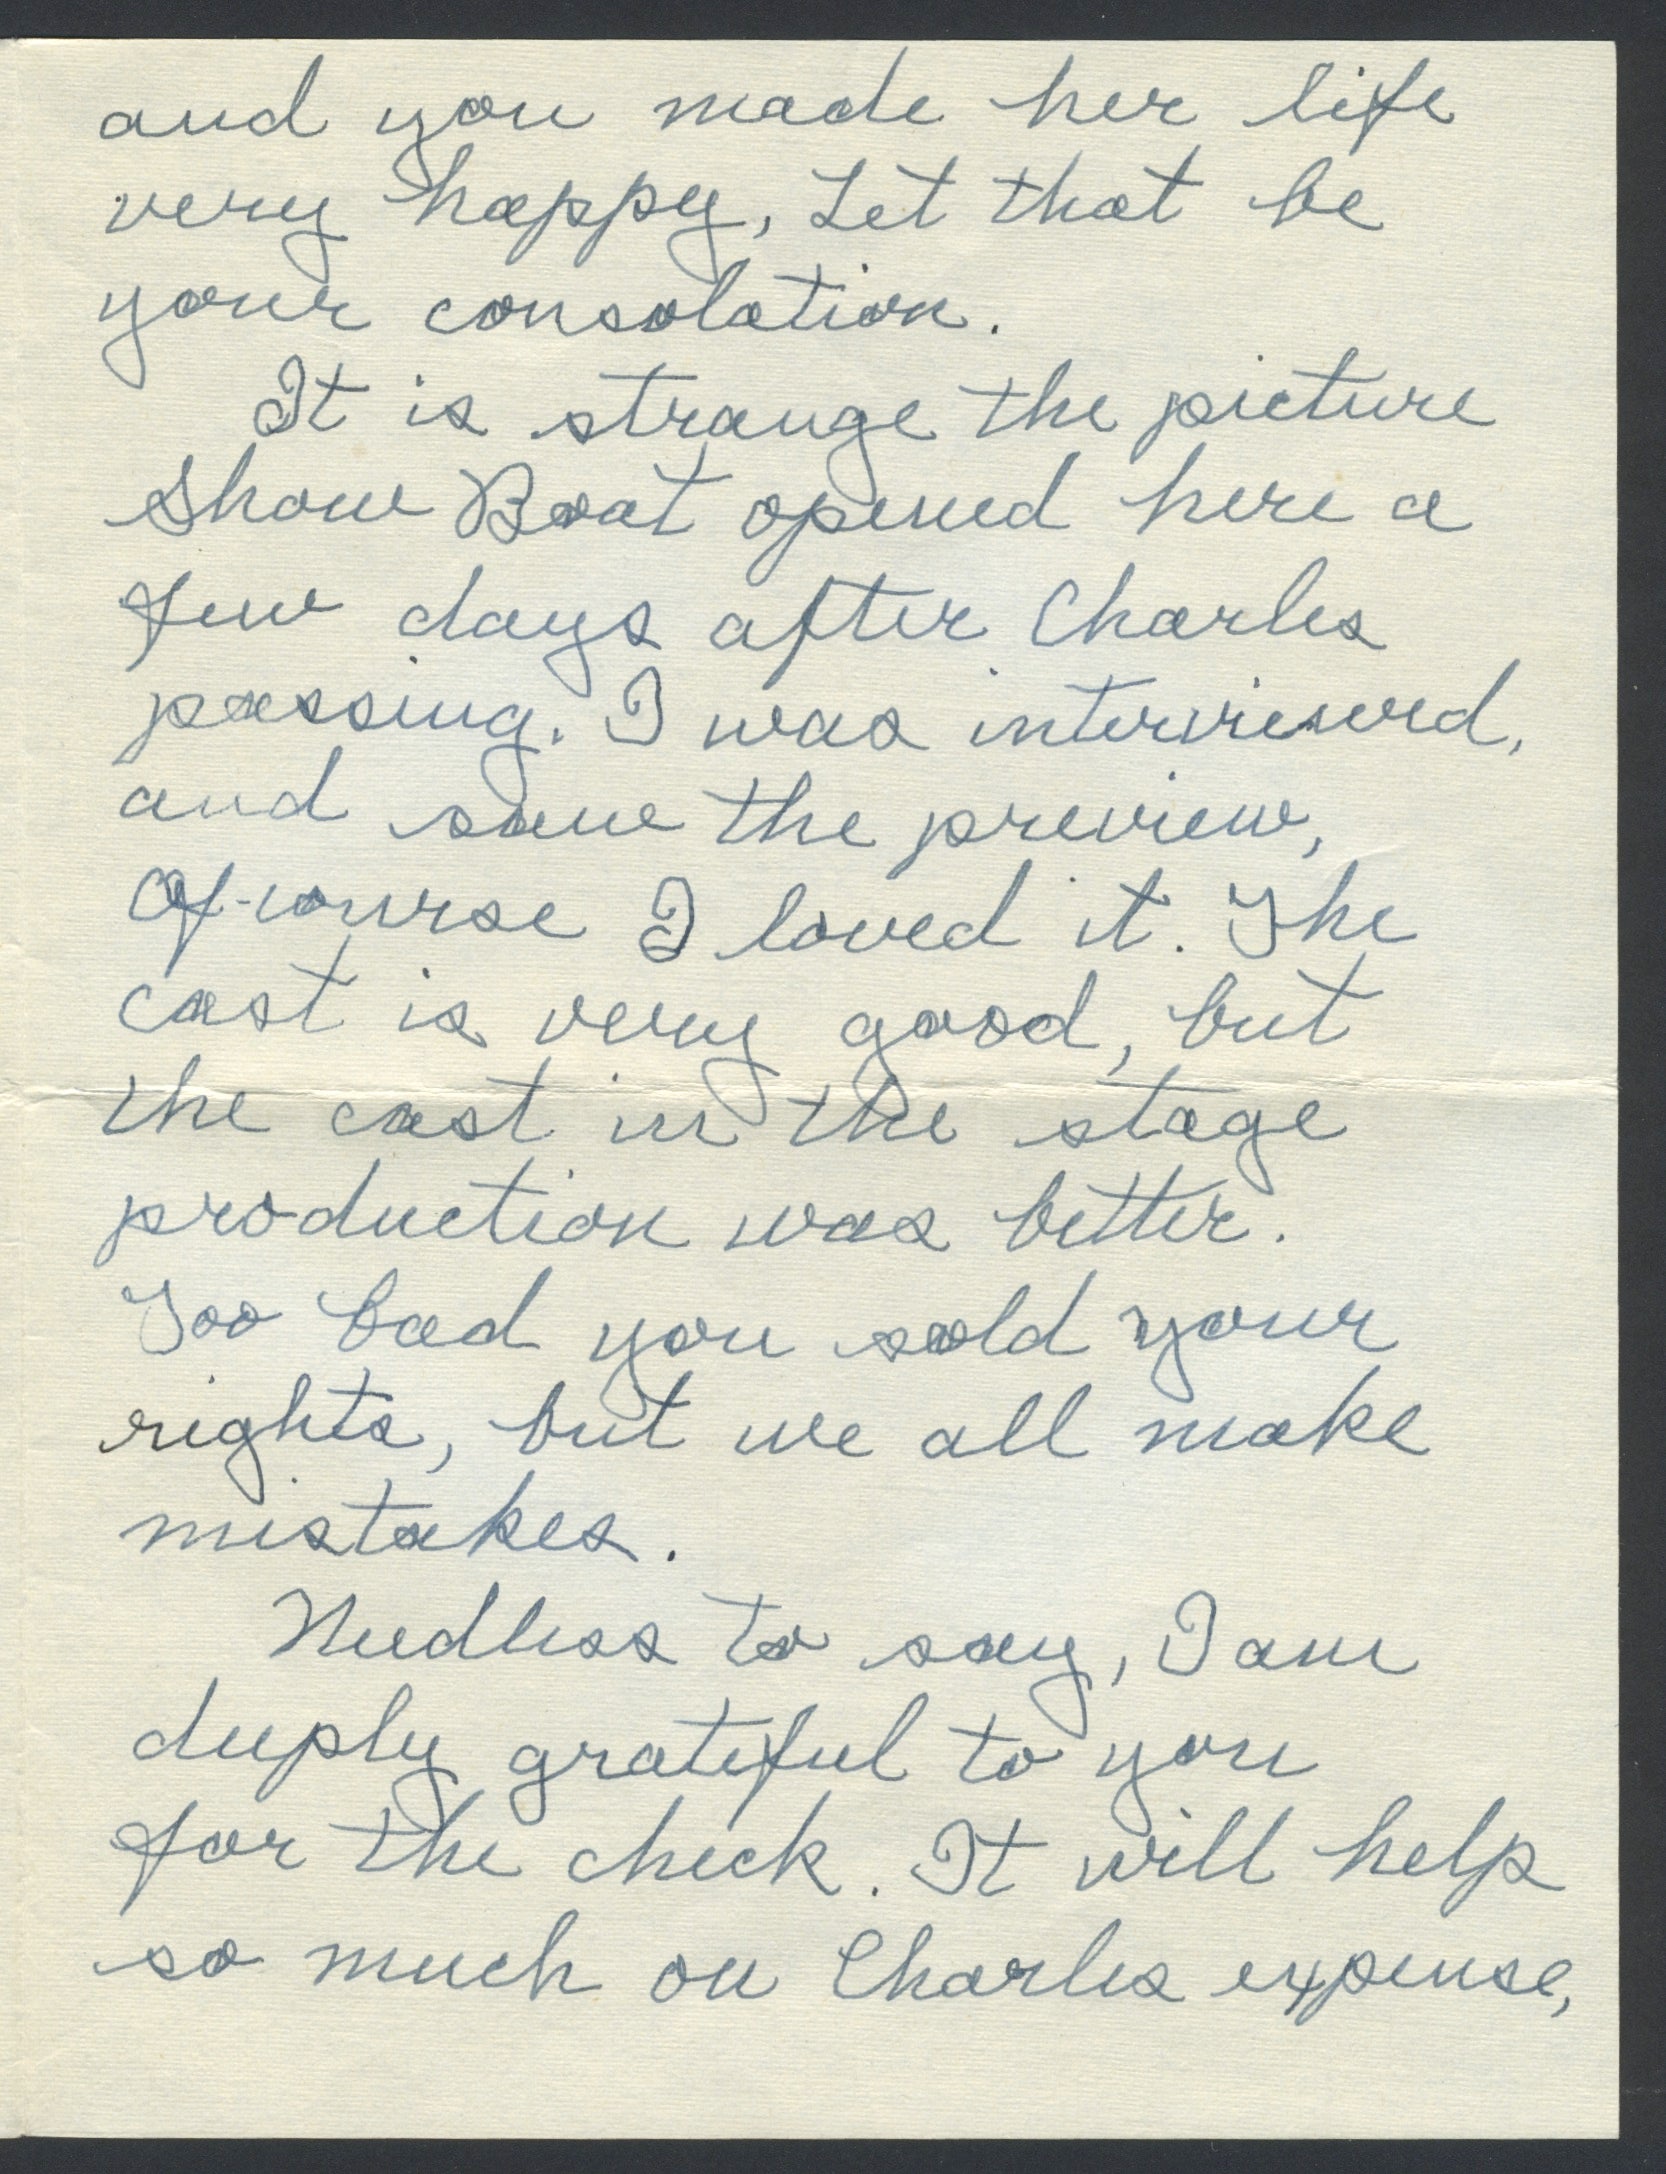 and you made her life
very happy, Let that be
your consolation.
It is strange the picture
Show Boat opened here a
few days after Charles
passing. I was interviewed,
and saw the preview,
Of-course I loved it. The
cast is very good, but
the cast in the stage
production was better.
Too bad you sold your
rights, but we all make
mistakes.
Needless to say, I am
deeply grateful to you
for the check. It will help
so much on Charles expense,